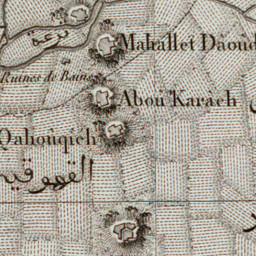 ترعة
Mahallet Daoud
Ruines de Bains
Abou Karâch
Qahouqieh
القهوقيه